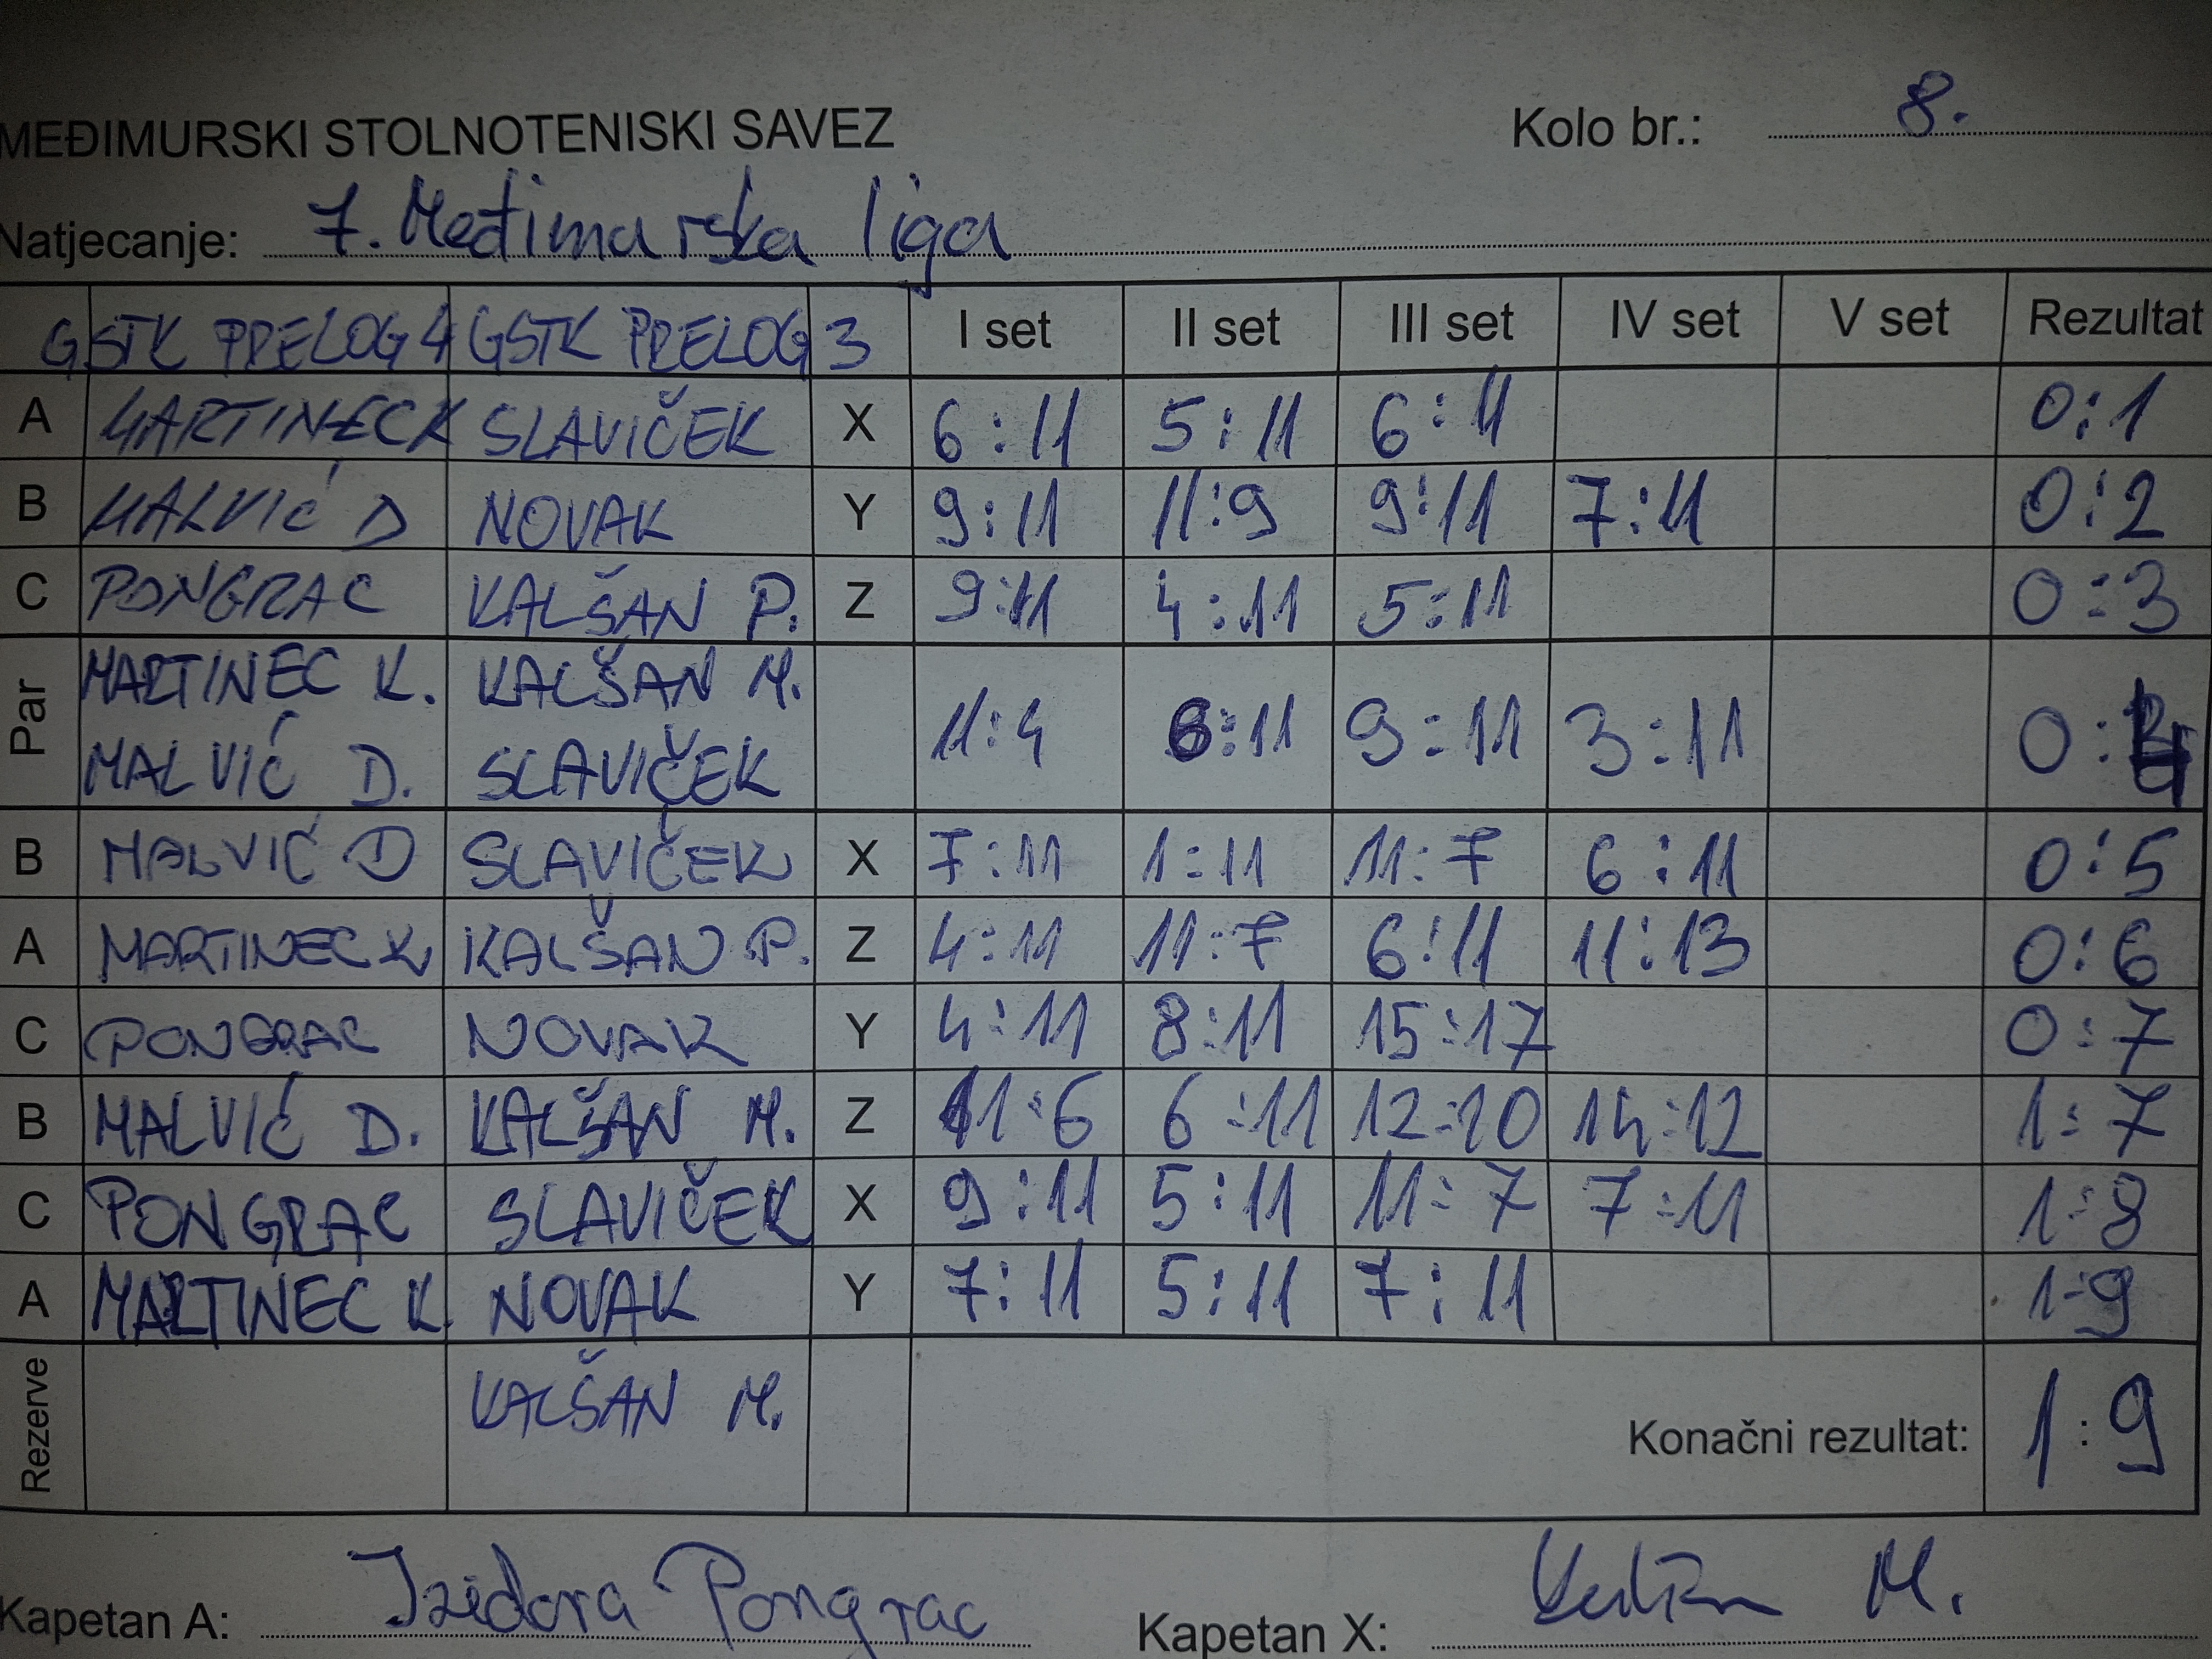 MEĐIMURSKI STOLNOTENISKI SAVEZ Kolo br.: 8.
Natjecanje: 7. Međimurska liga
GSTK PRELOG 4 GSTK PRELOG 3 I set II set III set IV set V set Rezultat
A MARTINEC K SLAVIČEK X 6:11 5:11 6:11 0:1
B MALVIĆ D NOVAK Y 9:11 11:9 9:11 7:11 0:2
C PONGRAC KALŠAN P. Z 9:11 4:11 5:11 0:3
Par MARTINEC K. KALŠAN M.
MALVIĆ D. SLAVIČEK 11:4 6:11 9:11 3:11 0:4
B MALVIĆ D SLAVIČEK X 7:11 1:11 11:7 6:11 0:5
A MARTINEC K. KALŠAN P. Z 4:11 11:7 6:11 11:13 0:6
C PONGRAC NOVAK Y 4:11 8:11 15:17 0:7
B MALVIĆ D. KALŠAN M. Z 11:6 6:11 12:10 14:12 1:7
C PONGRAC SLAVIČEK X 9:11 5:11 11:7 7:11 1:8
A MARTINEC K. NOVAK Y 7:11 5:11 7:11 1-9
Rezerve KALŠAN M. Konačni rezultat: 1:9
Kapetan A: Izidora Pongrac Kapetan X: M.